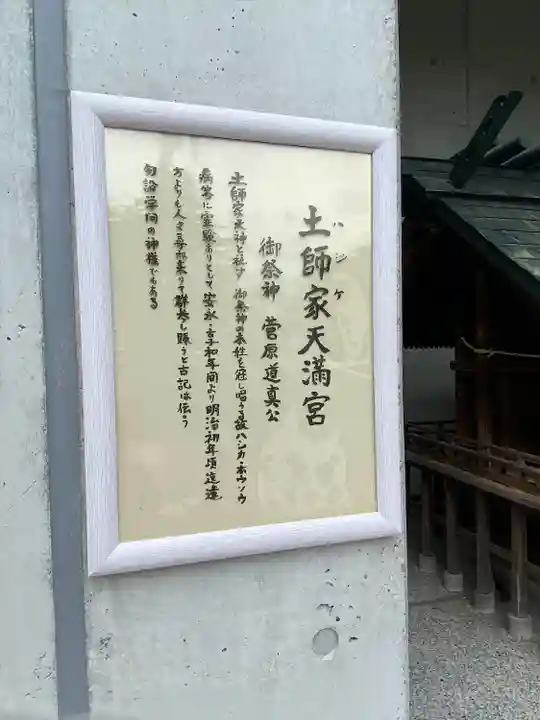 ハシケ
土師家天満宮
御祭神 菅原道真公
土師家天神之社ハ 御祭神の本姓を冠し唱うる故ハシカ・ホウソウ
病等に霊験ありとして 安永・享和年間より明治初年頃迄遠
方よりも人々毎郡来りて群参し賑うと古記は伝う
勿論学問の神様でもある